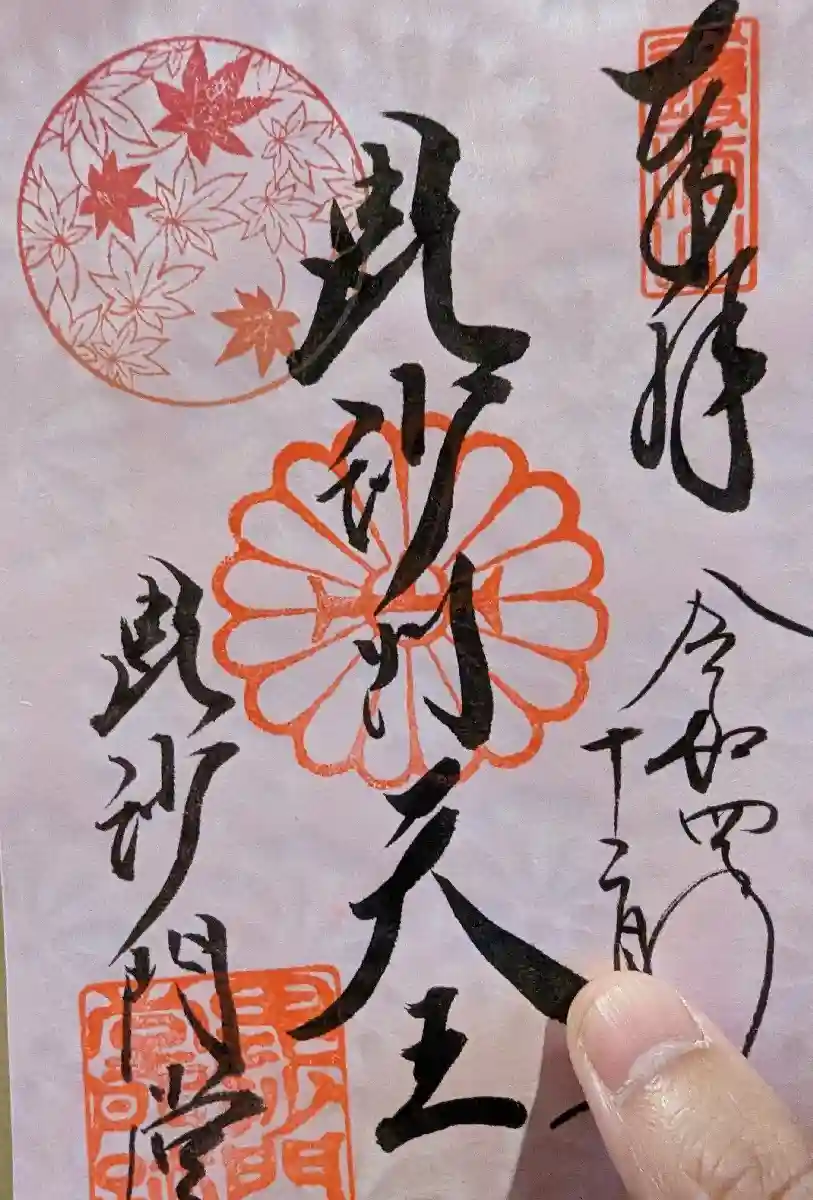 奉拝
令和四年
十二月
毘沙門天王
毘沙門堂